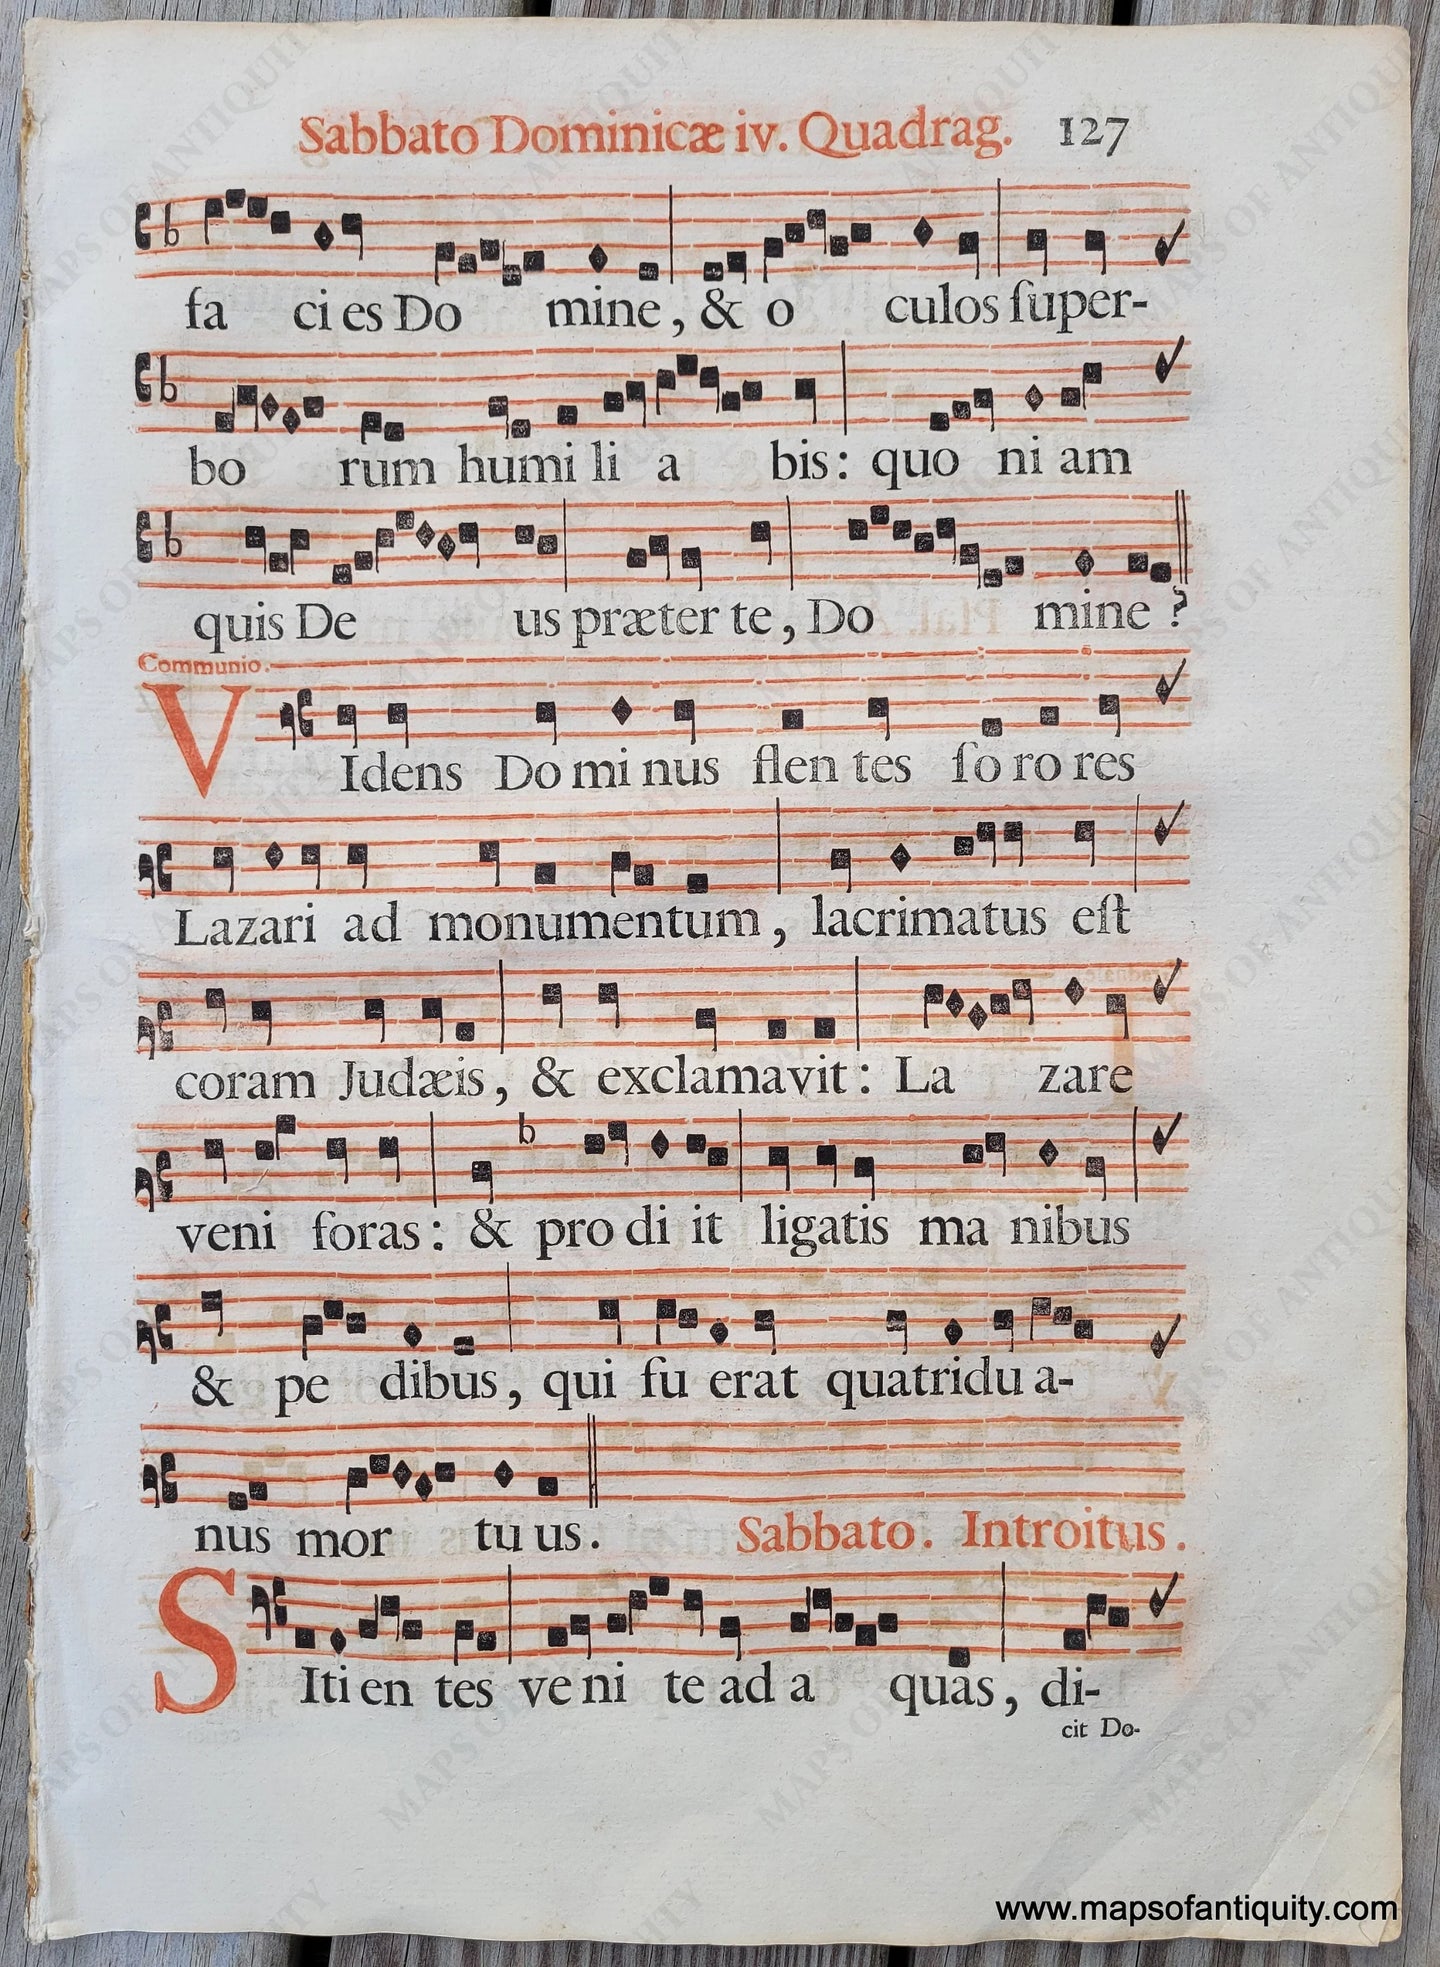 Sabbato Dominicæ iv. Quadrag. 127
fa ci es Do mine, & o culos ſuper-
bo rum humi li a bis: quo ni am
quis De us præter te, Do mine ?
Communio.
VIdens Do mi nus flen tes ſo ro res
Lazari ad monumentum, lacrimatus eſt
coram Judæis, & exclamavit: La zare
veni foras: & pro di it ligatis ma nibus
& pe dibus, qui fu erat quatridu a-
nus mor tu us. Sabbato. Introitus.
SIti en tes ve ni te ad a quas, di-
cit Do-
www.mapsofantiquity.com
MAPS OF ANTIQUITY